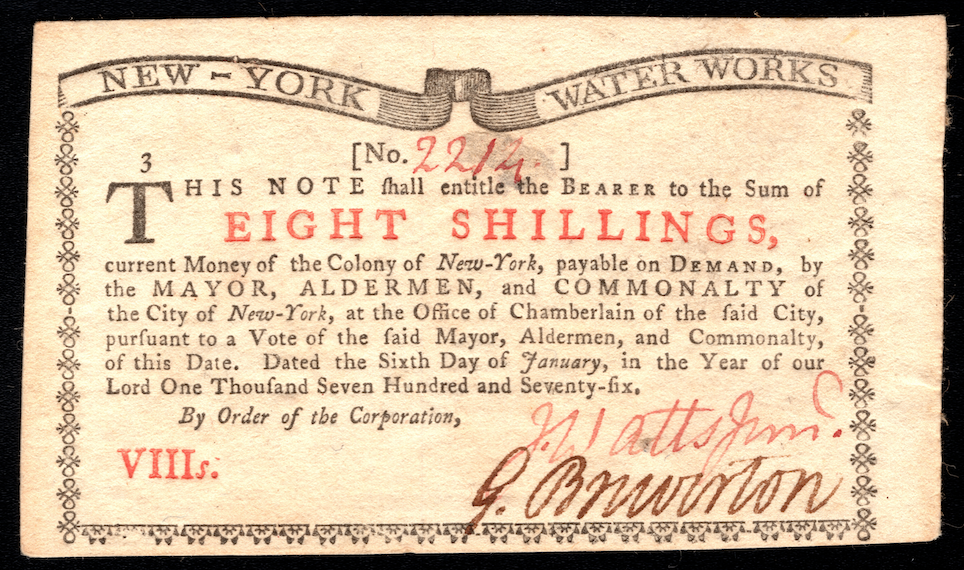 NEW-YORK WATER WORKS
[No. 2214. ]
3
THIS NOTE ſhall entitle the BEARER to the Sum of
EIGHT SHILLINGS,
current Money of the Colony of New-York, payable on DEMAND, by
the MAYOR, ALDERMEN, and COMMONALTY of
the City of New-York, at the Office of Chamberlain of the ſaid City,
purſuant to a Vote of the ſaid Mayor, Aldermen, and Commonalty,
of this Date. Dated the Sixth Day of January, in the Year of our
Lord One Thouſand Seven Hundred and Seventy-ſix.
By Order of the Corporation,
J Watts Junr.
VIIIs.
G. Brewerton